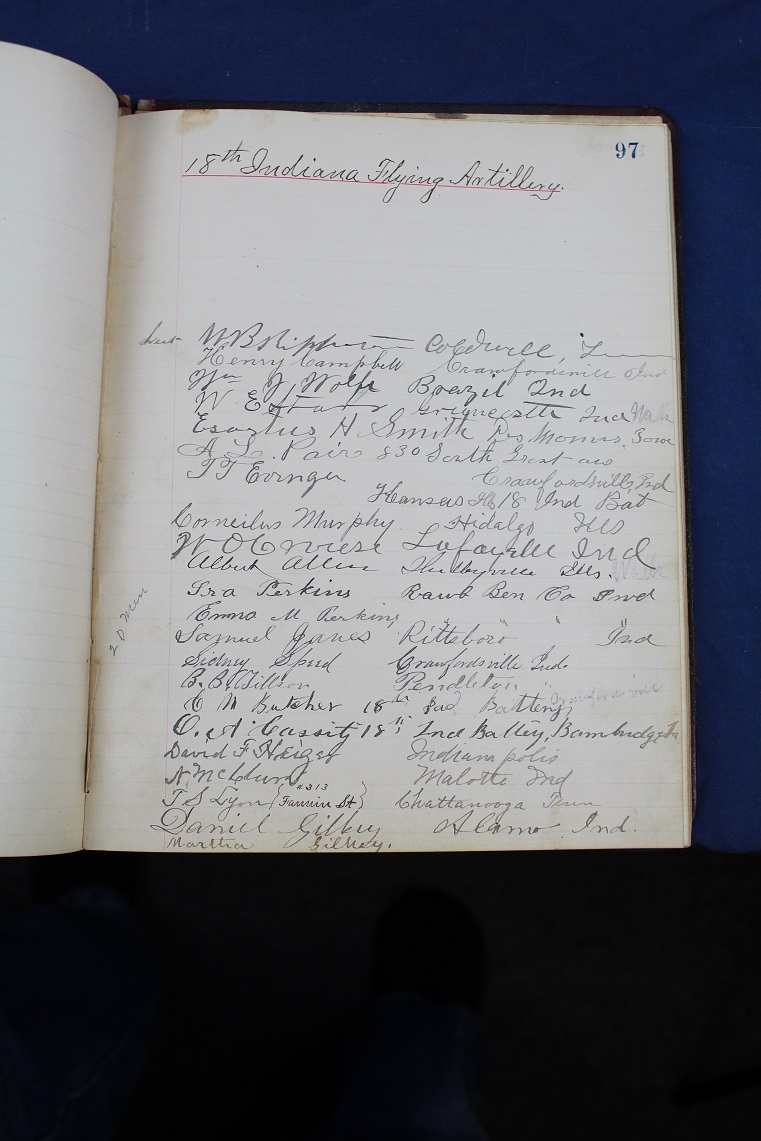 97
18th Indiana Flying Artillery.
Lieut W B Coldwell,
Henry Campbell Crawfordsville Ind
Wm J. Wolfe Brazil Ind
W. E. Ind
H Smith Des Moines, Iowa
A. L. Pair 830 South Grant ave
T T Evinger Crawfordsville Ind
Kansas Ills 18 Ind Bat
Corneilus Murphy Hidalgo Ills
W O Lafayette Ind
Albert Allen Shelbyville Ills.
Ira Perkins Ben Co Ind
Emma M Perkins " " "
Samuel Jones Pittsboro Ind
Sidney Speed Crawfordsville Ind.
B. B. Gillson Pendleton "
C N Butcher 18th Ind Battery, Crawfordsville
O. A. Cassity 18" Ind Battey, Bambridge In
David F. Indianpolis
N McClure Malotte Ind
T S Lyon {#313 Fannin St} Chattanooga Tenn
Daniel Gilkey Alamo Ind.
Martha Gilkey.
20 men